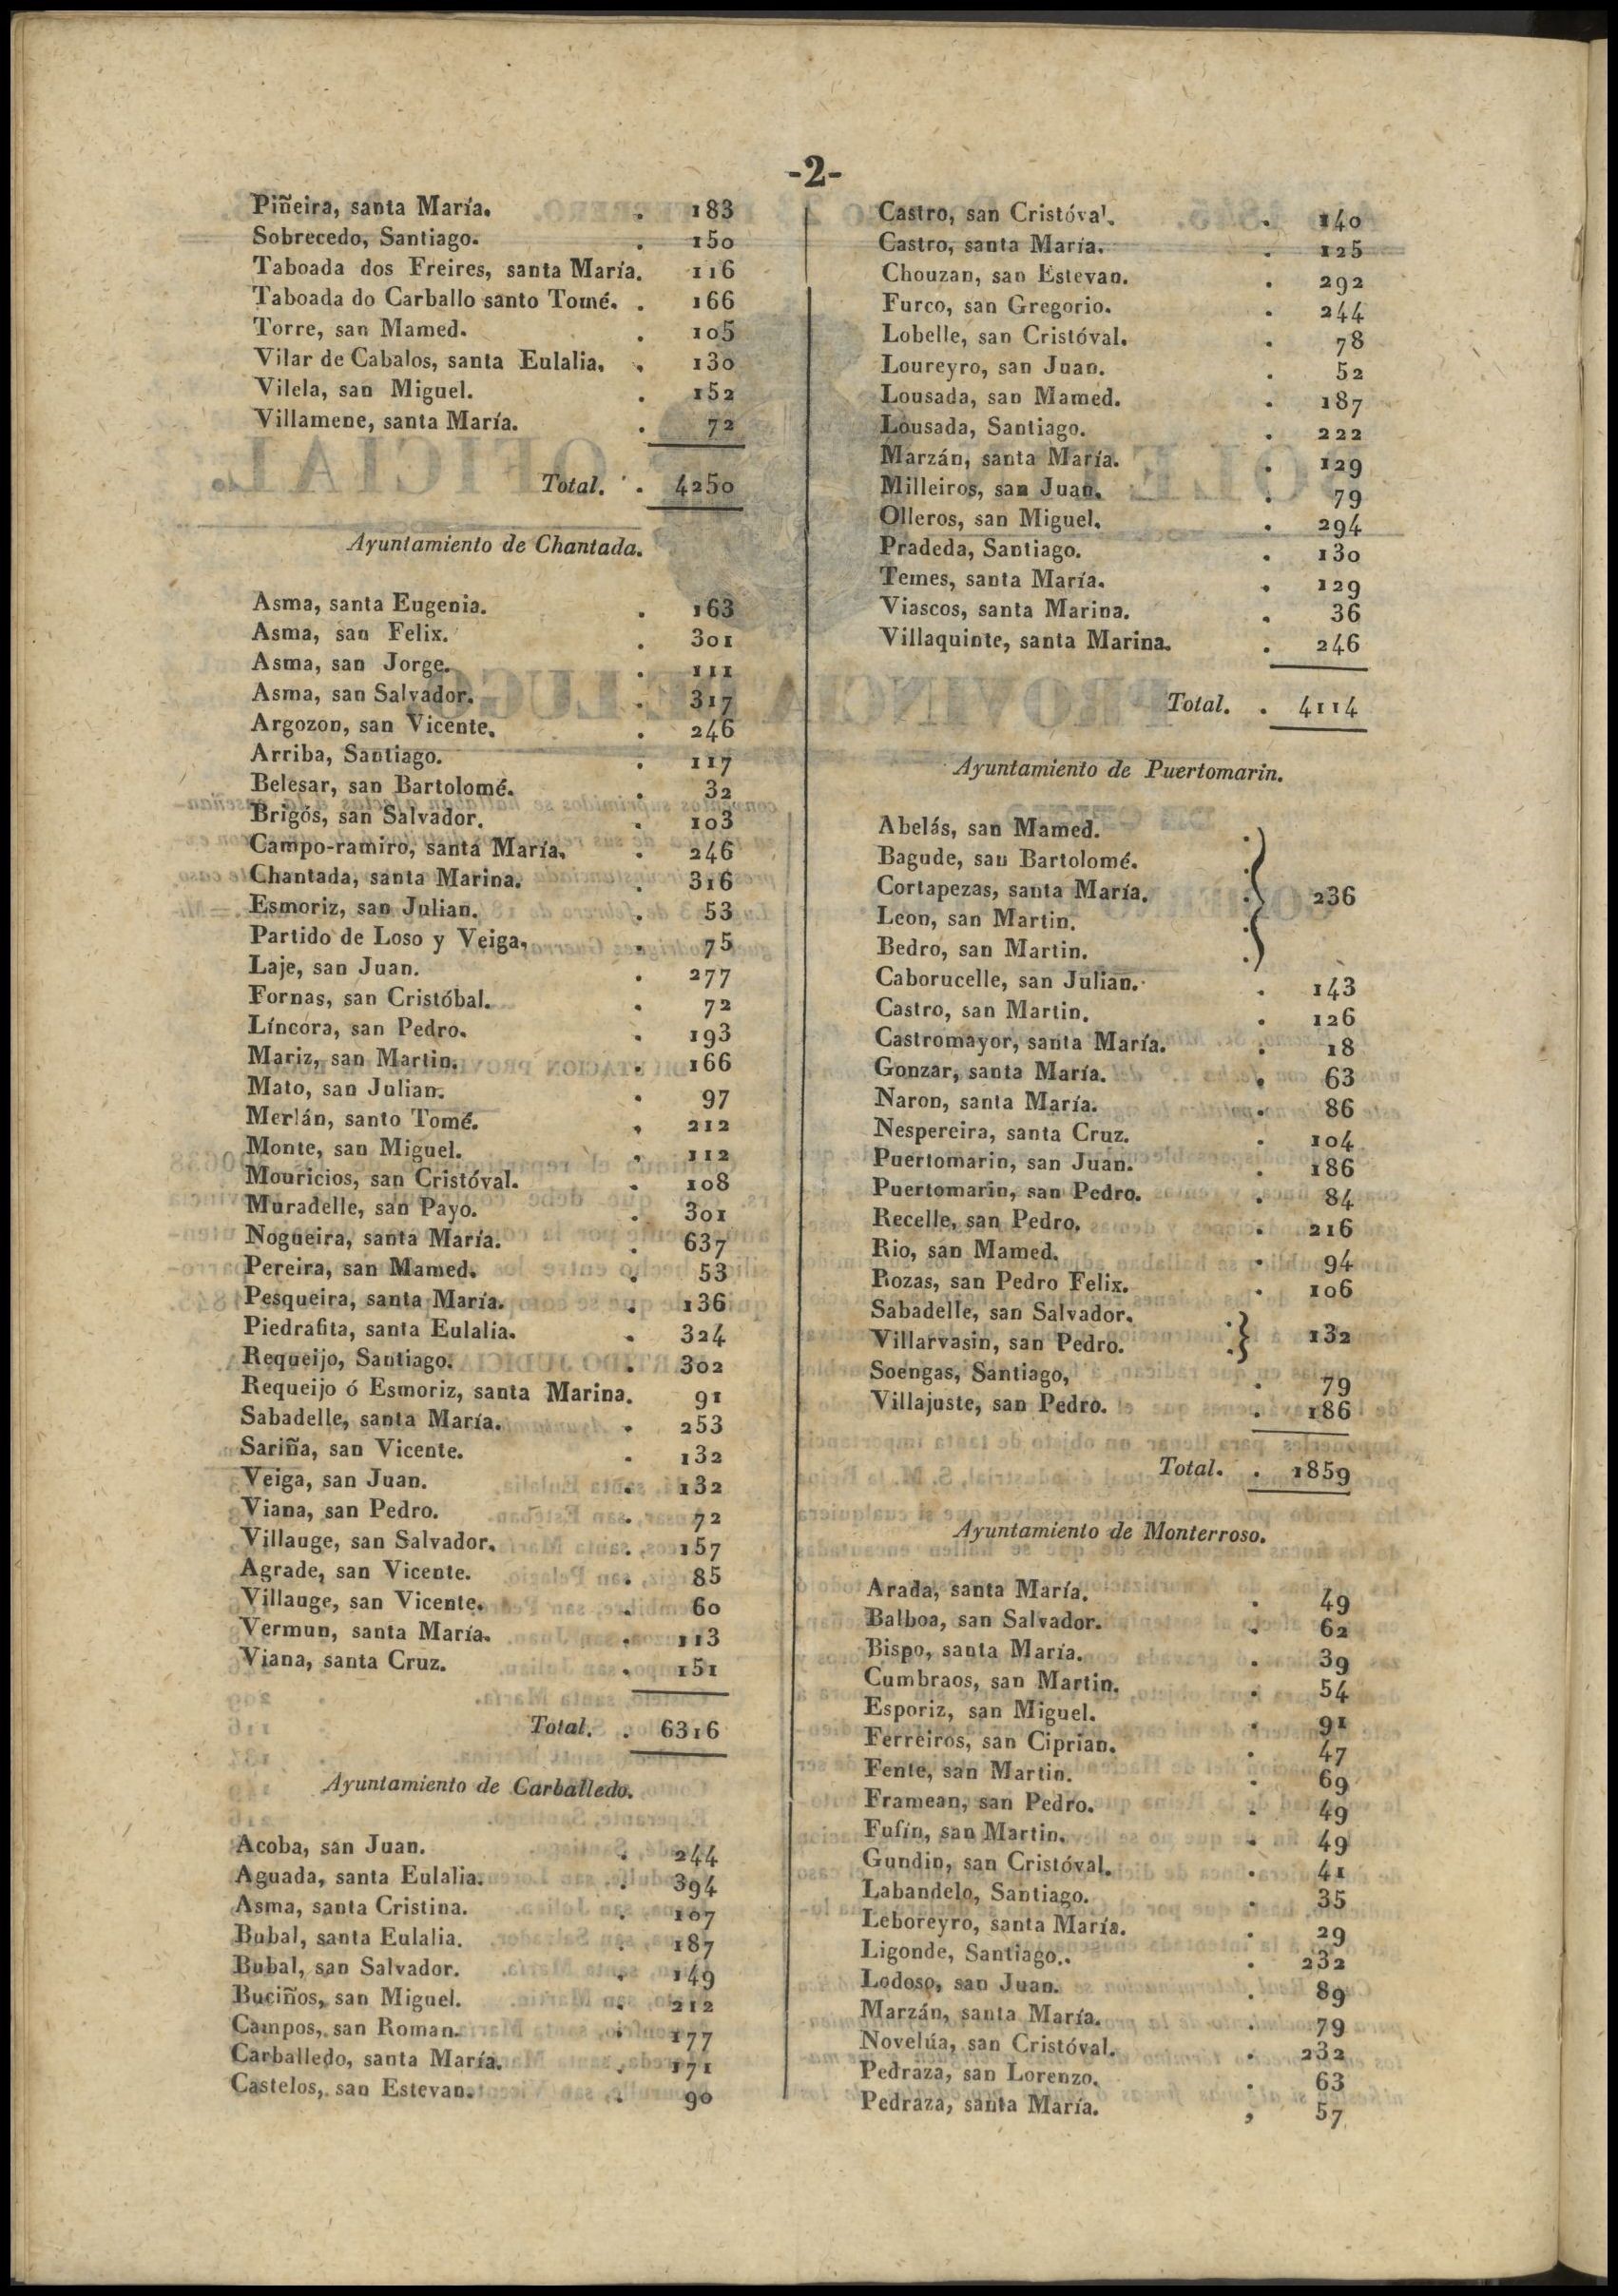 -2-
Piñeira, santa María. . 183
Sobrecedo, Santiago. . 150
Taboada dos Freires, santa María. 116
Taboada do Carballo santo Tomé. . 166
Torre, san Mamed. . 105
Vilar de Cabalos, santa Eulalia. . 130
Vilela, san Miguel. . 152
Villamene, santa María. . 72
Total. . 4250
Ayuntamiento de Chantada.
Asma, santa Eugenia. . 163
Asma, san Felix. . 301
Asma, san Jorge. . 111
Asma, san Salvador. . 317
Argozon, san Vicente. . 246
Arriba, Santiago. . 117
Belesar, san Bartolomé. . 32
Brigós, san Salvador. . 103
Campo-ramiro, santa María. . 246
Chantada, santa Marina. . 316
Esmoriz, san Julian. . 53
Partido de Loso y Veiga. . 75
Laje, san Juan. . 277
Fornas, san Cristóbal. . 72
Líncora, san Pedro. . 193
Mariz, san Martin. . 166
Mato, san Julian. . 97
Merlán, santo Tomé. . 212
Monte, san Miguel. . 112
Mouricios, san Cristóval. . 108
Muradelle, san Payo. . 301
Nogueira, santa María. . 637
Pereira, san Mamed. . 53
Pesqueira, santa María. . 136
Piedrafita, santa Eulalia. . 324
Requeijo, Santiago. . 302
Requeijo ó Esmoriz, santa Marina. 91
Sabadelle, santa María. . 253
Sariña, san Vicente. . 132
Veiga, san Juan. . 132
Viana, san Pedro. . 72
Villauge, san Salvador. . 157
Agrade, san Vicente. . 85
Villauge, san Vicente. . 60
Vermun, santa María. . 113
Viana, santa Cruz. . 151
Total. . 6316
Ayuntamiento de Carballedo.
Acoba, san Juan. . 244
Aguada, santa Eulalia. . 394
Asma, santa Cristina. . 107
Bubal, santa Eulalia. . 187
Bubal, san Salvador. . 149
Buciños, san Miguel. . 212
Campos, san Roman. . 177
Carballedo, santa María. . 171
Castelos, san Estevan. . 90
Castro, san Cristóval. . 140
Castro, santa María. . 125
Chouzan, san Estevan. . 292
Furco, san Gregorio. . 244
Lobelle, san Cristóval. . 78
Loureyro, san Juan. . 52
Lousada, san Mamed. . 187
Lousada, Santiago. . 222
Marzán, santa María. . 129
Milleiros, san Juan. . 79
Olleros, san Miguel. . 294
Pradeda, Santiago. . 130
Temes, santa María. . 129
Viascos, santa Marina. . 36
Villaquinte, santa Marina. . 246
Total. . 4114
Ayuntamiento de Puertomarin.
Abelás, san Mamed. .
Bagude, san Bartolomé. .
Cortapezas, santa María. . } 236
Leon, san Martin. .
Bedro, san Martin. .
Caborucelle, san Julian. . 143
Castro, san Martin. . 126
Castromayor, santa María. . 18
Gonzar, santa María. . 63
Naron, santa María. . 86
Nespereira, santa Cruz. . 104
Puertomarin, san Juan. . 186
Puertomarin, san Pedro. . 84
Recelle, san Pedro. . 216
Rio, san Mamed. . 94
Rozas, san Pedro Felix. . 106
Sabadelle, san Salvador. . } 132
Villarvasin, san Pedro. .
Soengas, Santiago, . 79
Villajuste, san Pedro. . 186
Total. . 1859
Ayuntamiento de Monterroso.
Arada, santa María. . 49
Balboa, san Salvador. . 62
Bispo, santa María. . 39
Cumbraos, san Martin. . 54
Esporiz, san Miguel. . 91
Ferreiros, san Ciprian. . 47
Fente, san Martin. . 69
Framean, san Pedro. . 49
Fufín, san Martin. . 49
Gundin, san Cristóval. . 41
Labandelo, Santiago. . 35
Leboreyro, santa María. . 29
Ligonde, Santiago.. . 232
Lodoso, san Juan. . 89
Marzán, santa María. . 79
Novelúa, san Cristóval. . 232
Pedraza, san Lorenzo. . 63
Pedraza, santa María. , 57